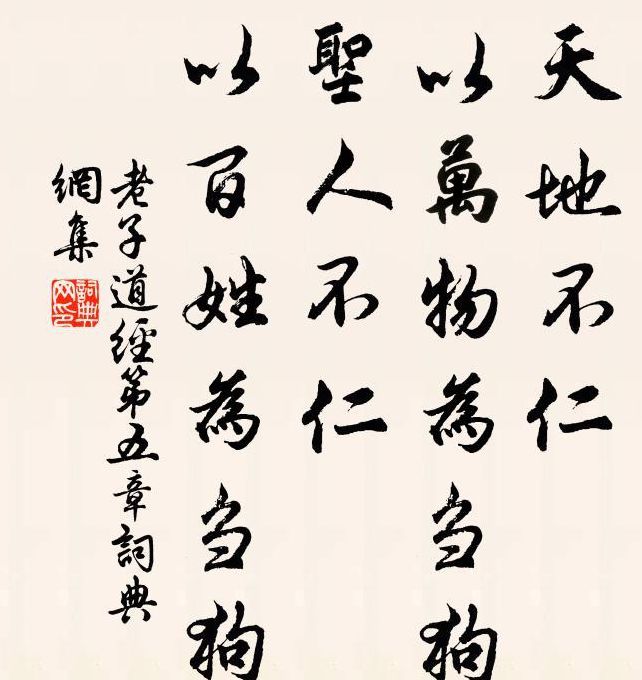 天地不仁
以萬物為当狗
聖人不仁
以百姓為当狗
老子道經第五章詞典
網集
詞典
网印